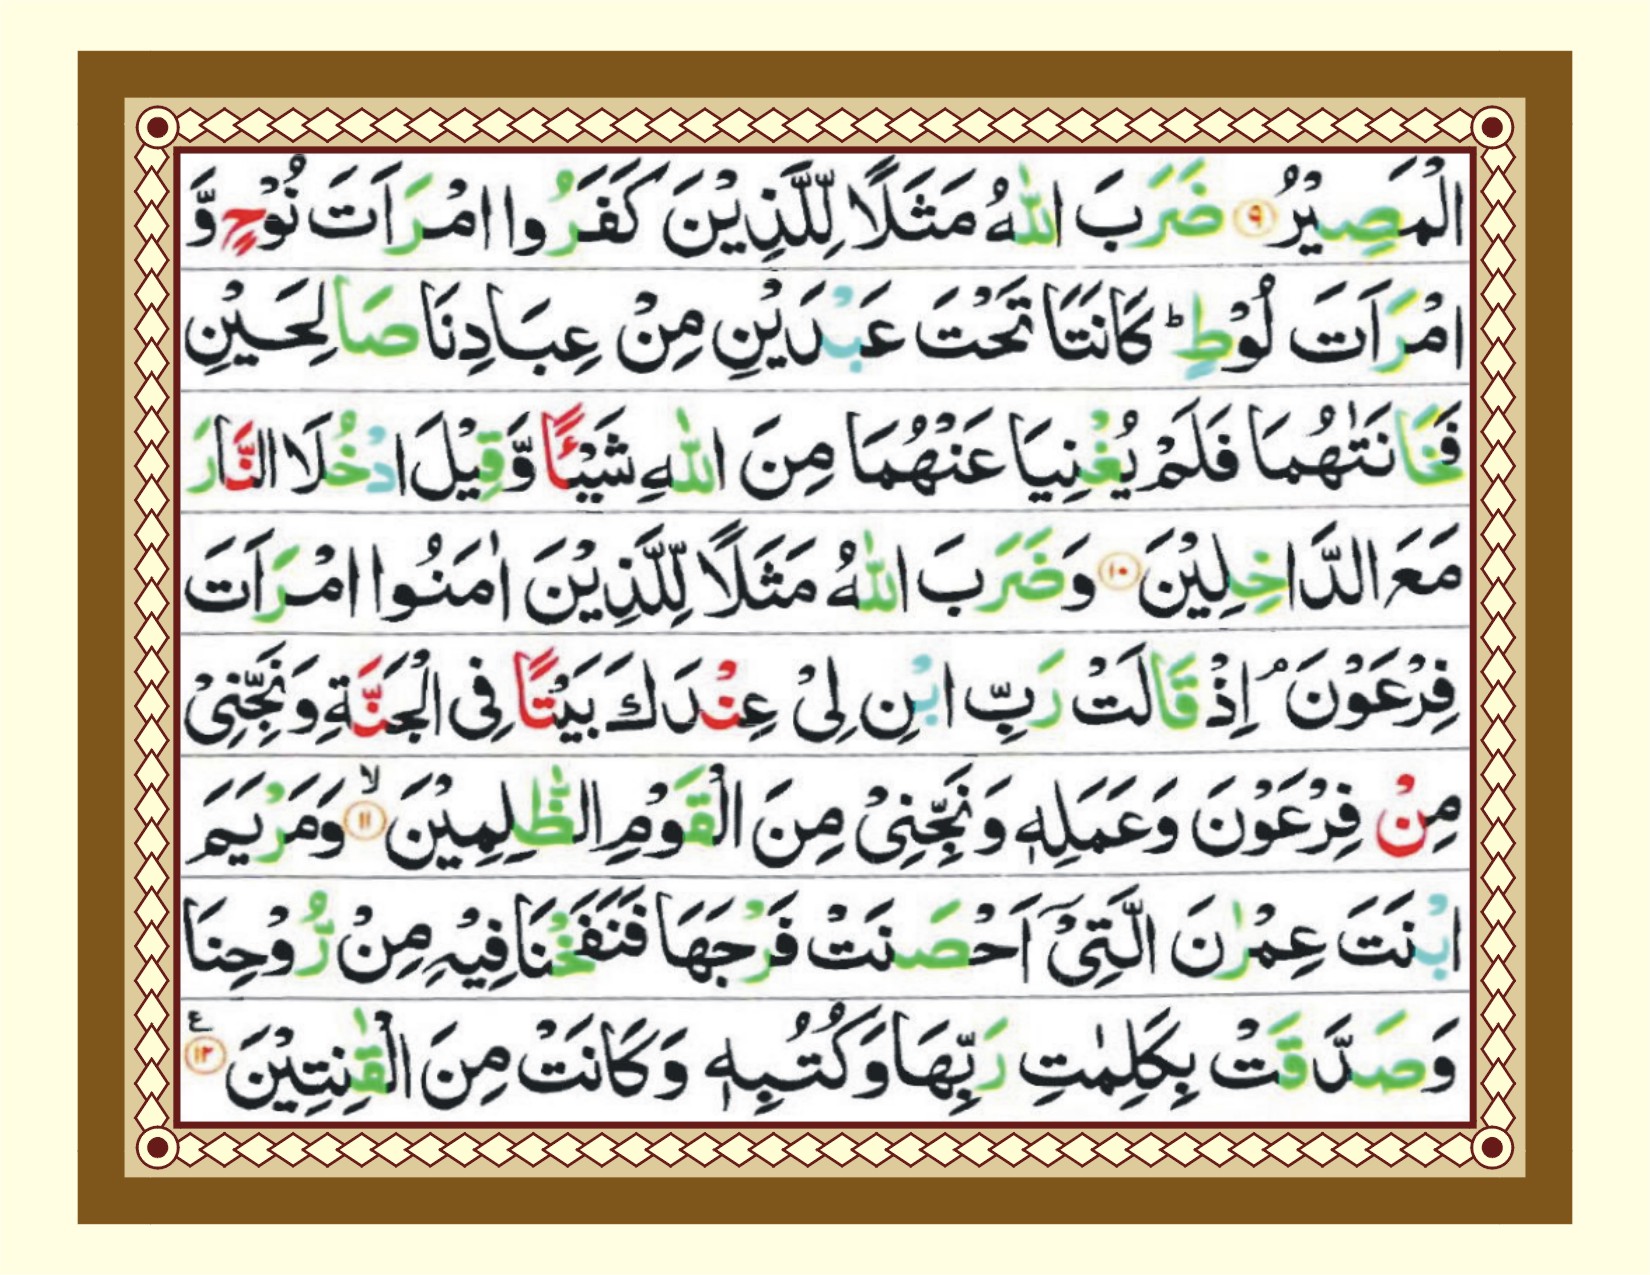 الْمَصِيْرُ ۹ ضَرَبَ اللّٰهُ مَثَلًا لِّلَّذِيْنَ كَفَرُوا امْرَاَتَ نُوْحٍ وَّ
امْرَاَتَ لُوْطٍ ؕ كَانَتَا تَحْتَ عَبْدَيْنِ مِنْ عِبَادِنَا صَالِحَيْنِ
فَخَانَتٰهُمَا فَلَمْ يُغْنِيَا عَنْهُمَا مِنَ اللّٰهِ شَيْـًٔا وَّقِيْلَ ادْخُلَا النَّارَ
مَعَ الدَّاخِلِيْنَ ۱۰ وَضَرَبَ اللّٰهُ مَثَلًا لِّلَّذِيْنَ اٰمَنُوا امْرَاَتَ
فِرْعَوْنَ ۘ اِذْ قَالَتْ رَبِّ ابْنِ لِيْ عِنْدَكَ بَيْتًا فِي الْجَنَّةِ وَنَجِّنِيْ
مِنْ فِرْعَوْنَ وَعَمَلِهٖ وَنَجِّنِيْ مِنَ الْقَوْمِ الظّٰلِمِيْنَ ۙ ۱۱ وَمَرْيَمَ
ابْنَتَ عِمْرٰنَ الَّتِيْٓ اَحْصَنَتْ فَرْجَهَا فَنَفَخْنَا فِيْهِ مِنْ رُّوْحِنَا
وَصَدَّقَتْ بِكَلِمٰتِ رَبِّهَا وَكُتُبِهٖ وَكَانَتْ مِنَ الْقٰنِتِيْنَ ۱۲ ع